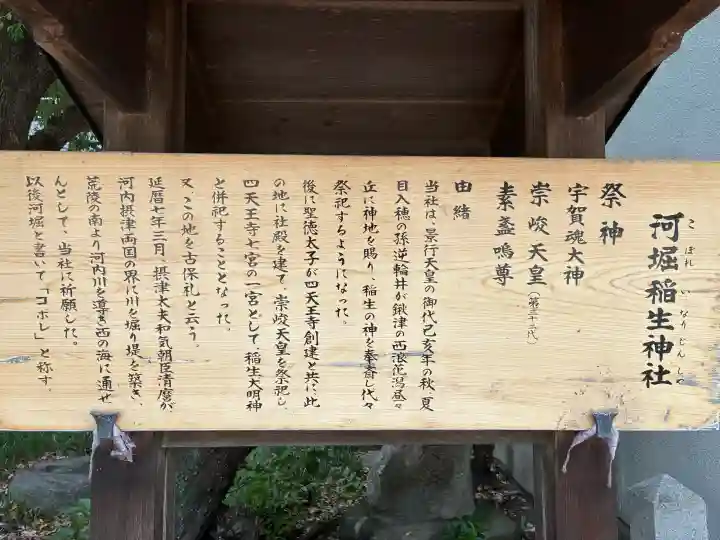 河堀稲生神社
こぼれ いなりじんしゃ
祭神
宇賀魂大神
崇峻天皇(第三十二代)
素盞嗚尊
由緒
当社は、景行天皇の御代己亥年の秋、夏
目入穂の孫逆輪井が鍬津の西浪花潟昼々
丘に神地を賜り、稲生の神を奉斎し代々
祭祀するようになった。
後に聖徳太子が四天王寺創建と共に、此
の地に社殿を建て、崇峻天皇を祭祀し、
四天王寺七宮の一宮として、稲生大明神
と併祀することとなった。
又、この地を古保礼と云う。
延暦七年三月、摂津大夫和気朝臣清麿が
河内摂津両国の界に川を堀り堤を築き、
荒陵の南より河内川を導き西の海に通せ
んとして、当社に祈願した。
以後河堀と書いて「コボレ」と称す。